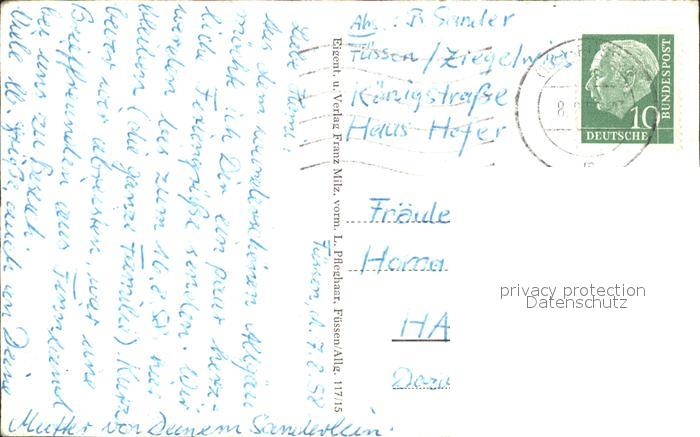 Abs.: B. Sander
Füssen/Ziegelwies
Königstraße
Haus Hofer
DEUTSCHE
BUNDESPOST
10
Fräule
Homa
HA
privacy protection
Datenschutz
Eigent. u. Verlag Franz Milz, vorm. L. Pfleghaar, Füssen/Allg. 117/15
Füssen, d. 7.8.58
Aus dem wunderschönen Allgäu
möcht ich Dir ein paar herz-
liche Feriengrüße senden. Wir
werden bis zum 16.8.58 hier
bleiben (die ganze Familie). Kurz
bevor wir abreisten, war eine
Brieffreundin aus Finnland
bei uns zu Besuch.
Viele Grüße, auch an Deine
Mutter von Deinem Sanderlein.